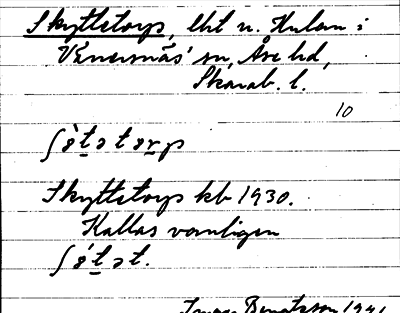 Skyttetorp, lht u. Hulan i
Venersnäs' sn, Åse hd,
Skarab. l.
10
ʃö̀tətɔrp
Skyttetorp kb 1930.
Kallas vanligen
ʃö́tət.
Bengtsson 1931